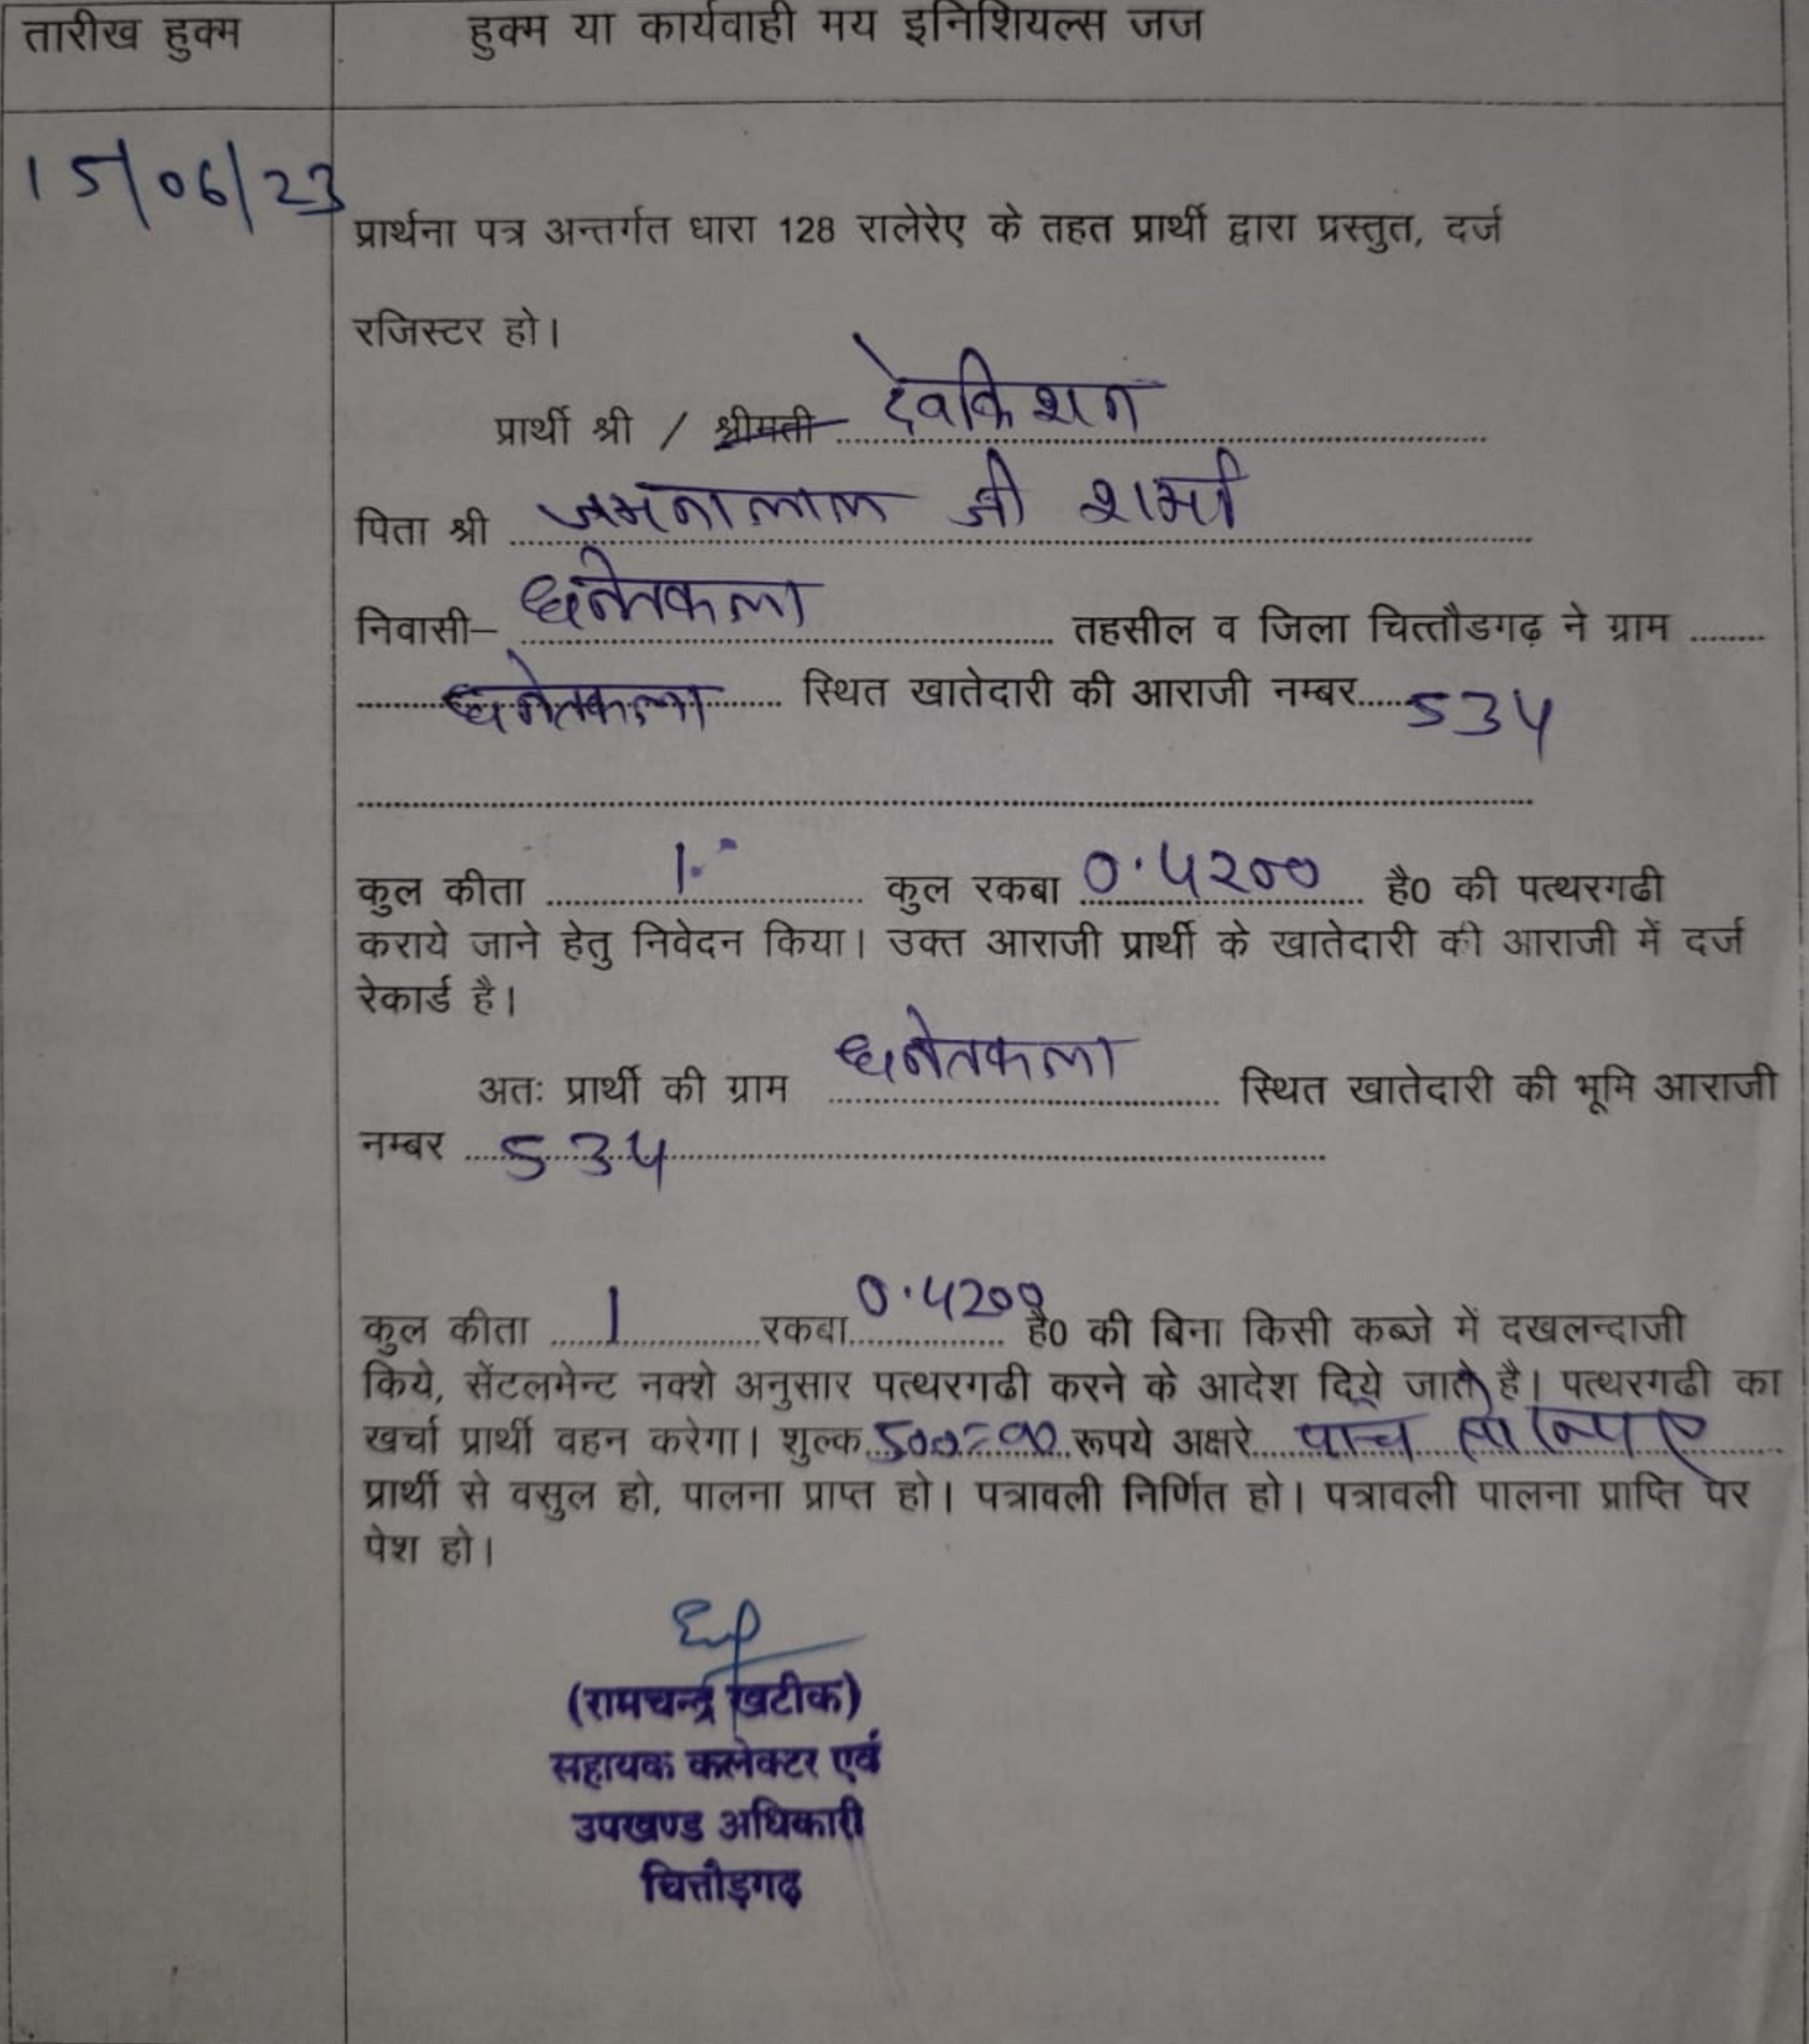 तारीख हुक्म
हुक्म या कार्यवाही मय इनिशियल्स जज
15/06/23
प्रार्थना पत्र अन्तर्गत धारा 128 रालेरेए के तहत प्रार्थी द्वारा प्रस्तुत, दर्ज
रजिस्टर हो।
प्रार्थी श्री / श्रीमती देवकिशन
पिता श्री जमनालाल जी शर्मा
निवासी– धनेतकला तहसील व जिला चित्तौडगढ़ ने ग्राम
धनेतकला स्थित खातेदारी की आराजी नम्बर 534
कुल कीता 1 कुल रकबा 0.4200 है0 की पत्थरगढी
कराये जाने हेतु निवेदन किया। उक्त आराजी प्रार्थी के खातेदारी की आराजी में दर्ज
रेकार्ड है।
अतः प्रार्थी की ग्राम धनेतकला स्थित खातेदारी की भूमि आराजी
नम्बर 534
कुल कीता 1 रकबा 0.4200 है0 की बिना किसी कब्जे में दखलन्दाजी
किये, सेंटलमेन्ट नक्शे अनुसार पत्थरगढी करने के आदेश दिये जाते है। पत्थरगढी का
खर्चा प्रार्थी वहन करेगा। शुल्क 500=00 रूपये अक्षरे पान्च सो रूपए
प्रार्थी से वसुल हो, पालना प्राप्त हो। पत्रावली निर्णित हो। पत्रावली पालना प्राप्ति पर
पेश हो।
(रामचन्द्र खटीक)
सहायक कलेक्टर एवं
उपखण्ड अधिकारी
चित्तौड़गढ़